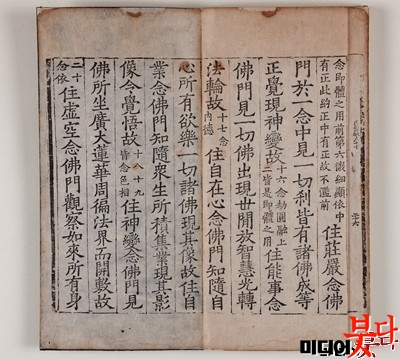 念即體之用前第六儀細顯依中
有正此約正中有依故不濫前
住莊嚴念佛
門於一念中見一切刹皆有諸佛成等
正覺現神變故
十六念劫圓融上
皆是即體之用
住能事念
佛門見一切佛出現世開放智慧光轉
法輪故
十七念
内德
住自在心念佛門知隨自
心所有欲樂一切諸佛現其像故住自
業念佛門知隨衆生所積集業現其影
像令覺悟故
十八十九
皆念色相
住神變念佛門見
佛所坐廣大蓮華周徧法界而開敷故
二十
念依
住虛空念佛門觀察如來所有身
붓다
미디어